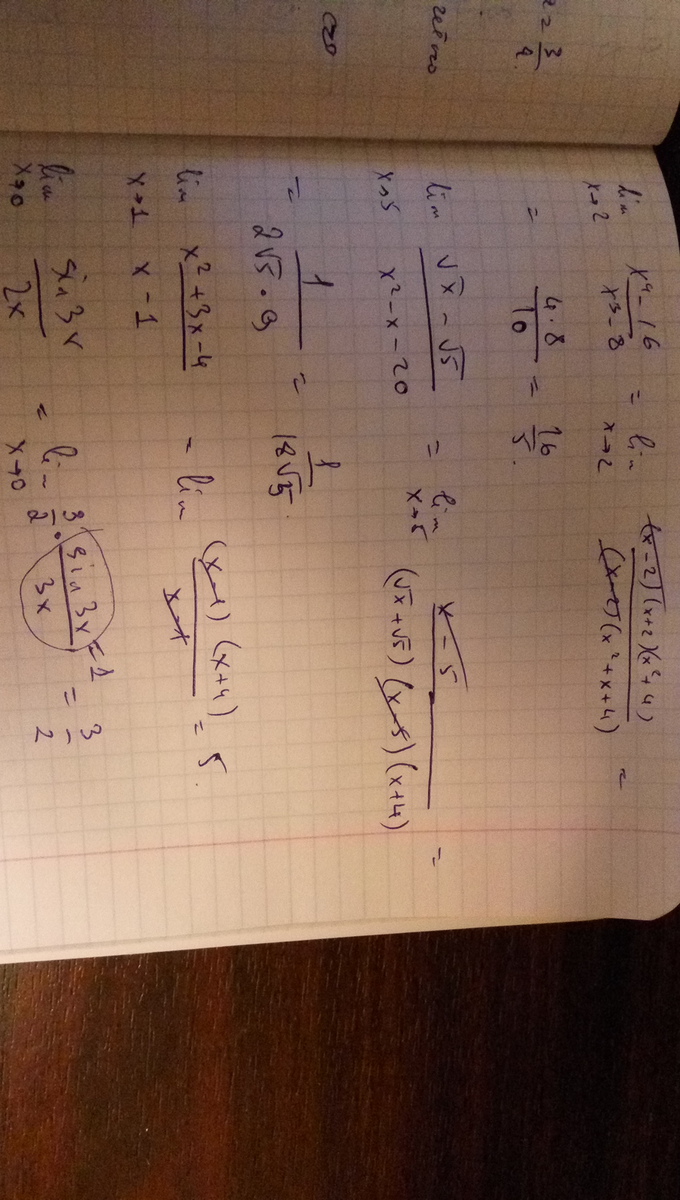 x = 3/4.
lim x→2 (x⁴ - 16)/(x³ - 8) = lim x→2 ((x-2)(x+2)(x²+4))/((x-2)(x²+x+4)) =
= (4·8)/10 = 16/5.
lim x→5 (√x - √5)/(x² - x - 20) = lim x→5 (x - 5)/((√x+√5)(x-5)(x+4)) =
= 1/(2√5·9) = 1/(18√5).
lim x→1 (x²+3x-4)/(x-1) = lim ((x-1)(x+4))/(x-1) = 5.
lim x→0 (sin 3x)/(2x) = lim x→0 3/2 · (sin 3x)/(3x) =1 = 3/2